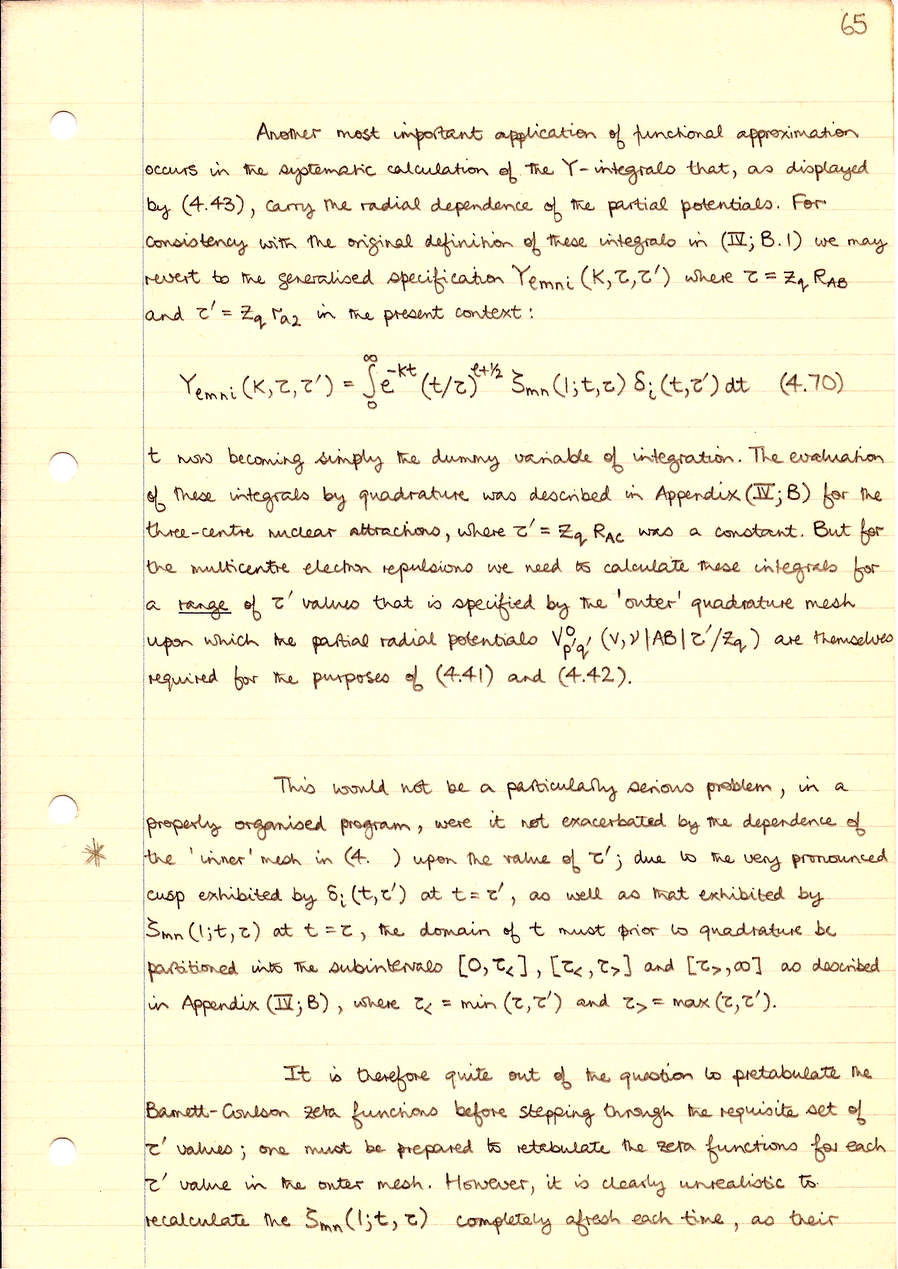 65
Another most important application of functional approximation
occurs in the systematic calculation of the Y-integrals that, as displayed
by (4.43), carry the radial dependence of the partial potentials. For
consistency with the original definition of these integrals in (IV; B.1) we may
revert to the generalised specification Yℓmni (K,τ,τ′) where τ = Zq RAB
and τ′ = Zq ra2 in the present context:
Yℓmni (K,τ,τ′) = ∫₀^∞ e^-Kt (t/τ)^ℓ+1/2 ζmn (1;t,τ) δi (t,τ′) dt (4.70)
t now becoming simply the dummy variable of integration. The evaluation
of these integrals by quadrature was described in Appendix (IV; B) for the
three-centre nuclear attractions, where τ′ = Zq RAC was a constant. But for
the multicentre electron repulsions we need to calculate these integrals for
a range of τ′ values that is specified by the 'outer' quadrature mesh
upon which the partial radial potentials V⁰p′q′ (v,ν|AB|τ′/Zq) are themselves
required for the purposes of (4.41) and (4.42).
This would not be a particularly serious problem, in a
properly organised program, were it not exacerbated by the dependence of
* the 'inner' mesh in (4. ) upon the value of τ′; due to the very pronounced
cusp exhibited by δi (t,τ′) at t = τ′, as well as that exhibited by
ζmn (1;t,τ) at t = τ, the domain of t must prior to quadrature be
partitioned into the subintervals [0,τ<], [τ<,τ>] and [τ>,∞] as described
in Appendix (IV; B), where τ< = min (τ,τ′) and τ> = max (τ,τ′).
It is therefore quite out of the question to pretabulate the
Barnett-Coulson zeta functions before stepping through the requisite set of
τ′ values; one must be prepared to retabulate the zeta functions for each
τ′ value in the outer mesh. However, it is clearly unrealistic to
recalculate the ζmn (1;t,τ) completely afresh each time, as their